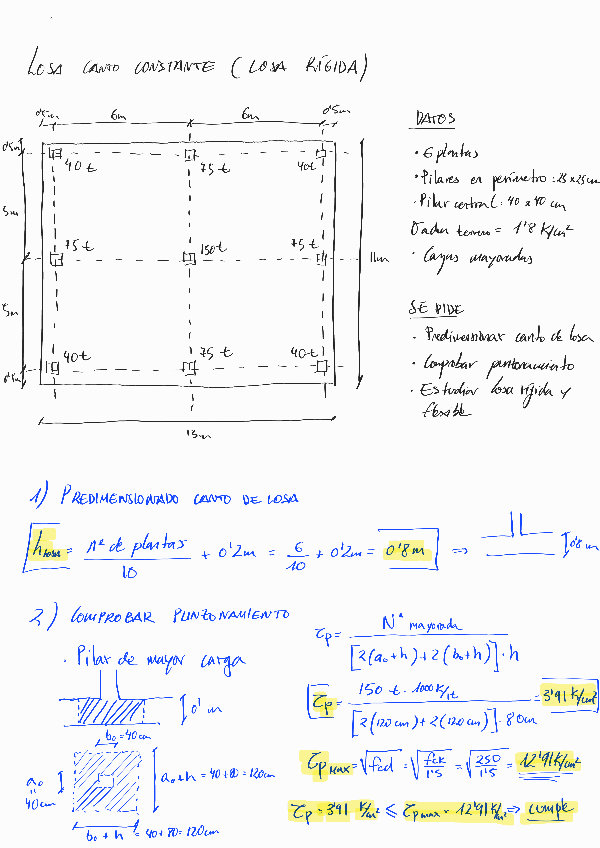 LOSA CANTO CONSTANTE (LOSA RÍGIDA)
0'5m 6m 6m 0'5m
0'5m
40t 75t 40t
5m
75t 150t 75t
11m
5m
40t 75t 40t
0'5m
13m
DATOS
· 6 plantas
· Pilares en perímetro: 25x25cm
· Pilar central: 40x40 cm
σadm terreno = 1'8 K/cm²
· Cargas mayoradas
SE PIDE
· Predimensionar canto de losa
· Comprobar punzonamiento
· Estudiar losa rígida y
flexible
1) PREDIMENSIONADO CANTO DE LOSA
hlosa = Nº de plantas / 10 + 0'2m = 6/10 + 0'2m = 0'8m ⇒ 0'8m
2) COMPROBAR PUNZONAMIENTO
· Pilar de mayor carga
0' m
b₀ = 40cm
a₀ = 40cm
a₀+h = 40+80 = 120cm
b₀ + h = 40+80 = 120cm
τp = N* mayorada / [2(a₀+h)+2(b₀+h)]·h
τp = 150 t · 1000 K/t / [2(120cm)+2(120cm)]·80cm = 3'91 K/cm²
τp max = √fcd = √(fck/1'5) = √(250/1'5) = 12'91 K/cm²
τp = 3'91 K/cm² ≤ τp max = 12'91 K/cm² ⇒ cumple